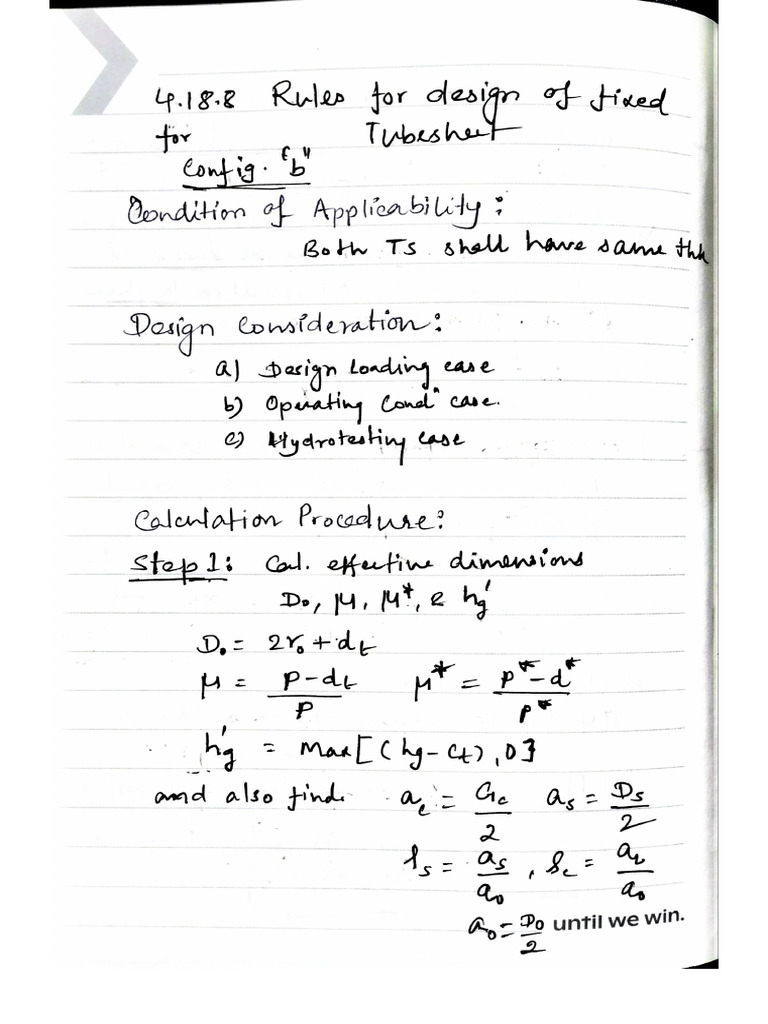 4.18.8 Rules for design of fixed
for Tubesheet
Config. "b"
Condition of Applicability:
Both TS shall have same thk
Design Consideration:
a) Design Loading case
b) Operating Condⁿ case.
c) Hydrotesting case
Calculation Procedure:
Step 1: Cal. effective dimensions
Do, μ, μ*, & hg'
Do = 2ro + dt
μ = (p-dt)/p μ* = (p*-d*)/p*
hg' = Max[(hg-Ct), 0}
and also find. ac = Gc/2 as = Ds/2
ls = as/ao, lc = ac/ao
ao = Do/2 until we win.